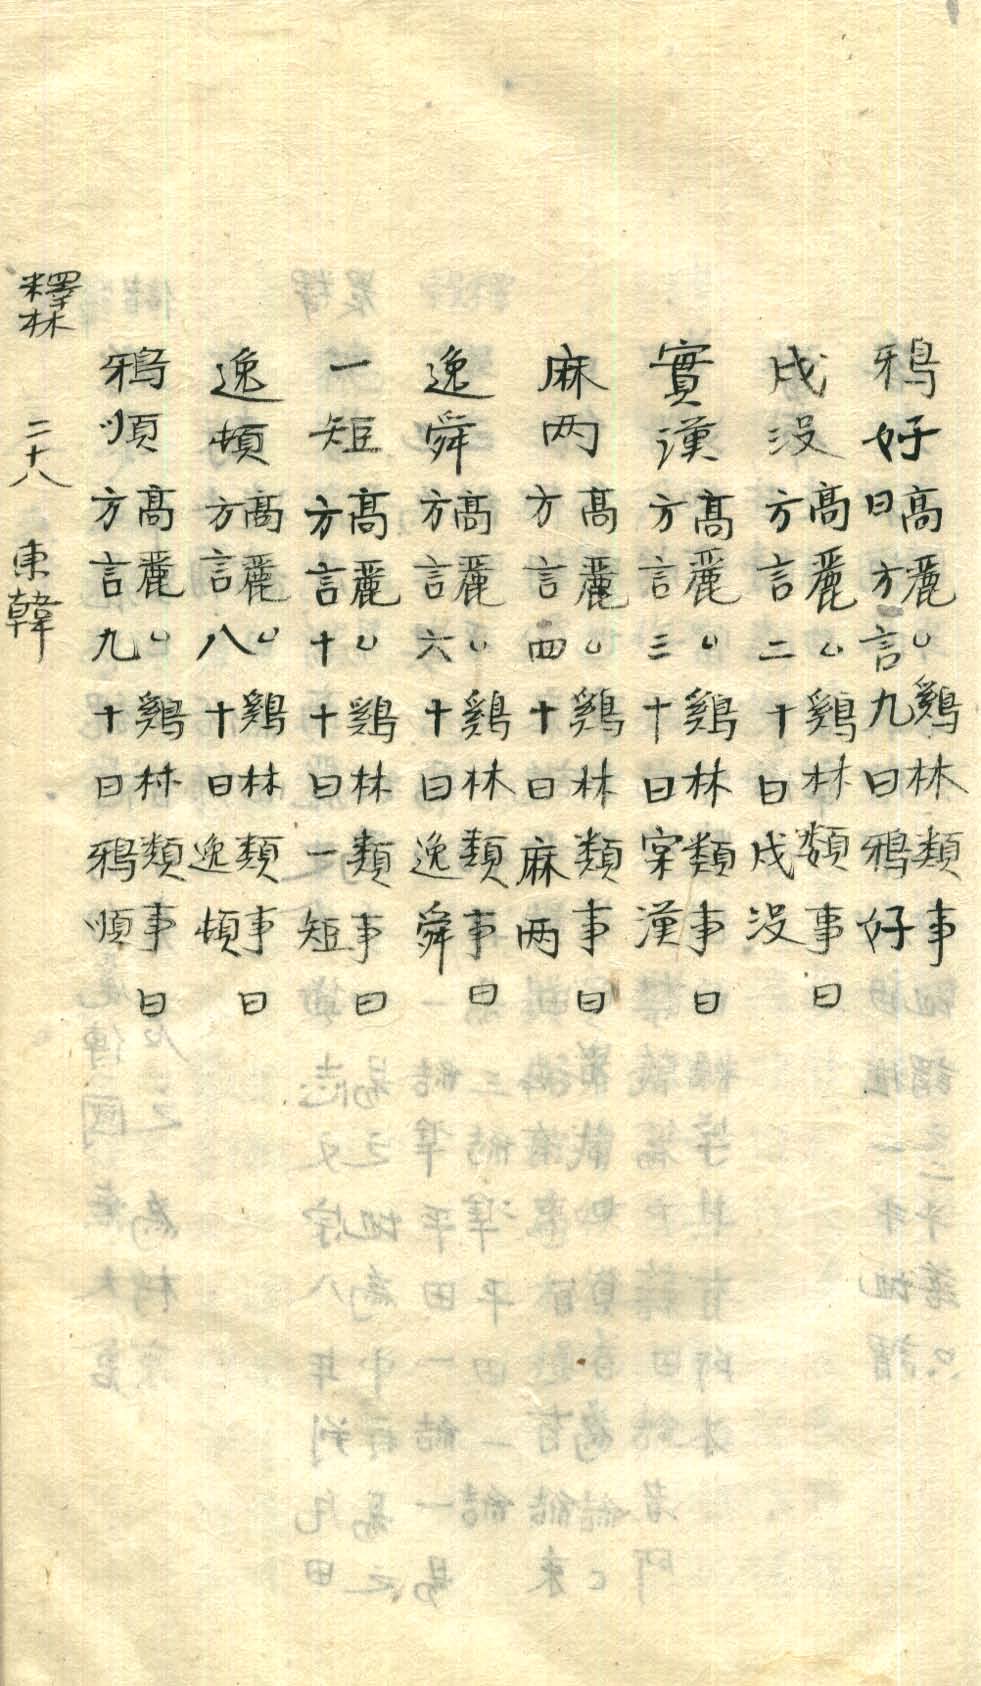 鴉好 高麗〻鷄林類事日方言九曰鴉好
戌没 高麗〻鷄林類事曰方言二十曰戌没
實漢 高麗〻鷄林類事曰方言三十曰宲漢
麻两 高麗〻鷄林類事曰方言四十曰麻两
逸舜 高麗〻鷄林類事曰方言六十曰逸舜
一短 高麗〻鷄林類事曰方言十十曰一短
逸頓 高麗〻鷄林類事曰方言八十曰逸頓
鴉順 高麗〻鷄林類事曰方言九十曰鴉順
釋林 二十八 東韓